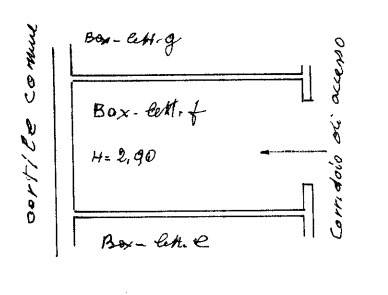 cortile comune
Box-lett.g
Box-lett.f
H=2,90
Corridoio di accesso
Box-lett.e